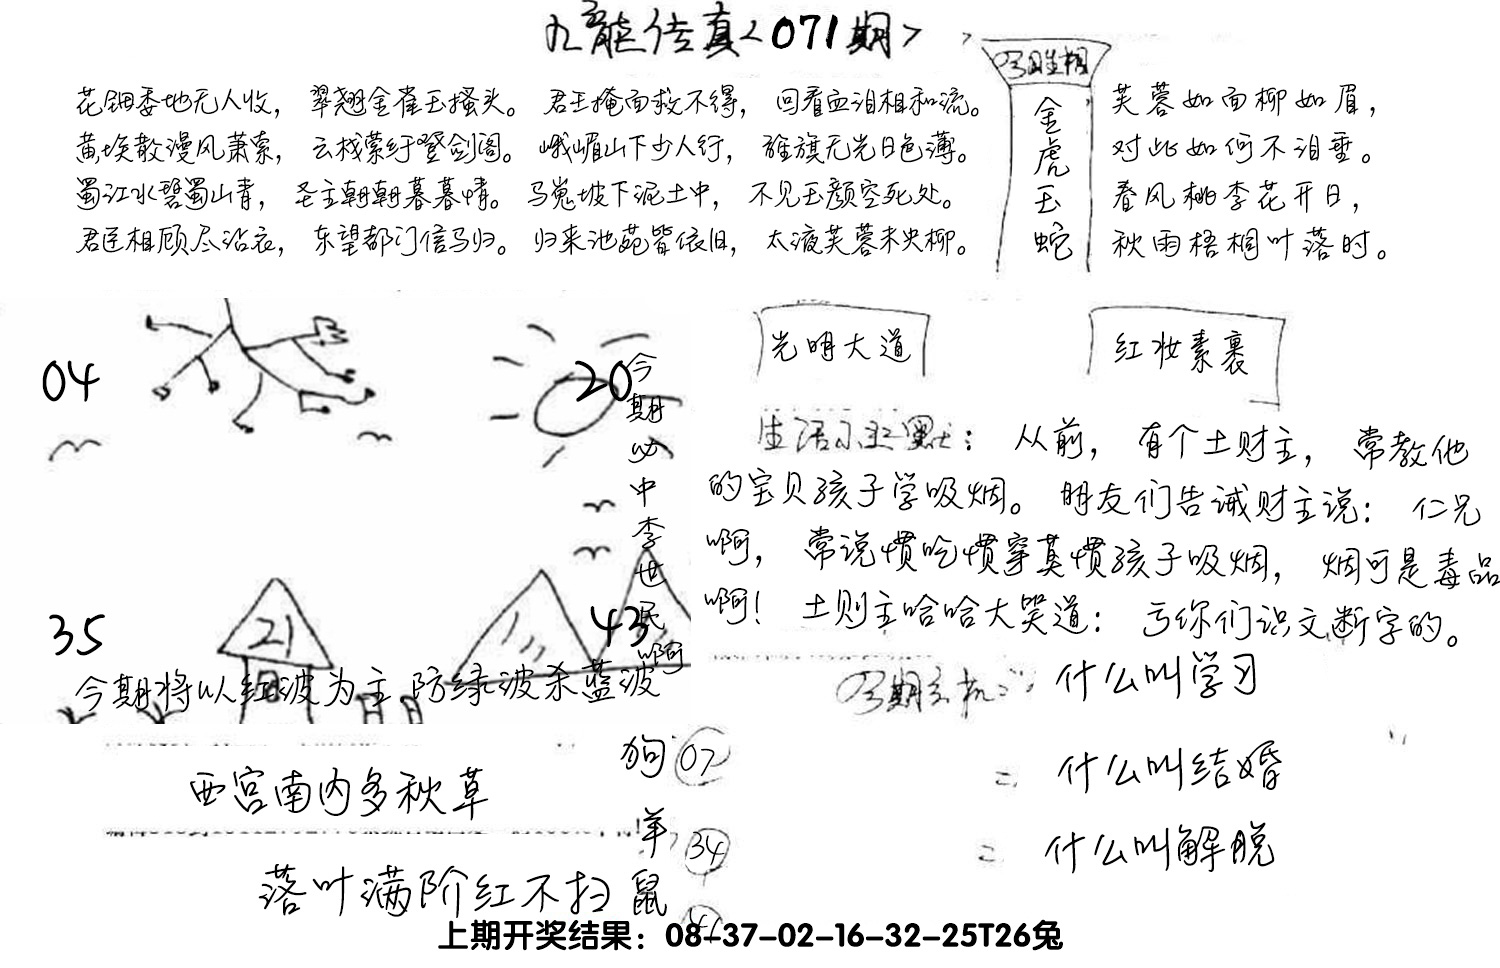 九龙传真<071期>
花钿委地无人收，翠翘金雀玉搔头。君王掩面救不得，回看血泪相和流。
黄埃散漫风萧索，云栈萦纡登剑阁。峨嵋山下少人行，旌旗无光日色薄。
蜀江水碧蜀山青，圣主朝朝暮暮情。马嵬坡下泥土中，不见玉颜空死处。
君臣相顾尽沾衣，东望都门信马归。归来池苑皆依旧，太液芙蓉未央柳。
金虎玉蛇
芙蓉如面柳如眉，
对此如何不泪垂。
春风桃李花开日，
秋雨梧桐叶落时。
04
20
35
21
43
今期必中李世民啊
今期将以红波为主防绿波杀蓝波
光明大道
红妆素裹
生活小幽默：从前，有个土财主，常教他
的宝贝孩子学吸烟。朋友们告诫财主说：仁兄
啊，常说惯吃惯穿莫惯孩子吸烟，烟可是毒品
啊！土财主哈哈大笑道：亏你们识文断字的。
今期玄机：什么叫学习
二：什么叫结婚
二：什么叫解脱
西宫南内多秋草
落叶满阶红不扫
狗 07
羊 34
鼠 41
上期开奖结果：08-37-02-16-32-25T26兔